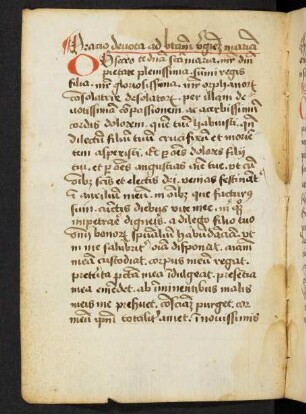 Oracio devota ad btam v̇gīez mariā
Obsecro te dn̄a sctā maria. mr̄ dn̄i
pietate plenissima. sum̄i regis
filia. mr̄ gloriosissima. mr̄ orphanor̄
cōsolatrix desolator̄. per illam de
uotissimā compassionem ac acerbissimū
cordis dolorem. quē tu habuisti. qn̄
dilectū filiū tuū crucifixū et morīē
tem aspexisti. Et ꝑ oēs dolores filij
tui. et ꝑ oēs angustias aīe tue. vt cū
oībꝫ scīs et electis dei. venias festināt
ī auxiliū meū. in oībꝫ que facturꝯ
sum. cūctis diebus vite mee. in
impetrare digneris. a dilecto filio tuo
oīm bonorū spūaliū habūdāciā. vt
in me salubrit̄ oīa disponat. aīam
meā custodiat. corpus meū regat.
pretita pctā mea īdulgeat. presētia
mea emēdet. ab iminentibus malis
meis me
meū ip̄m totalit̄ amet. ī novissimis